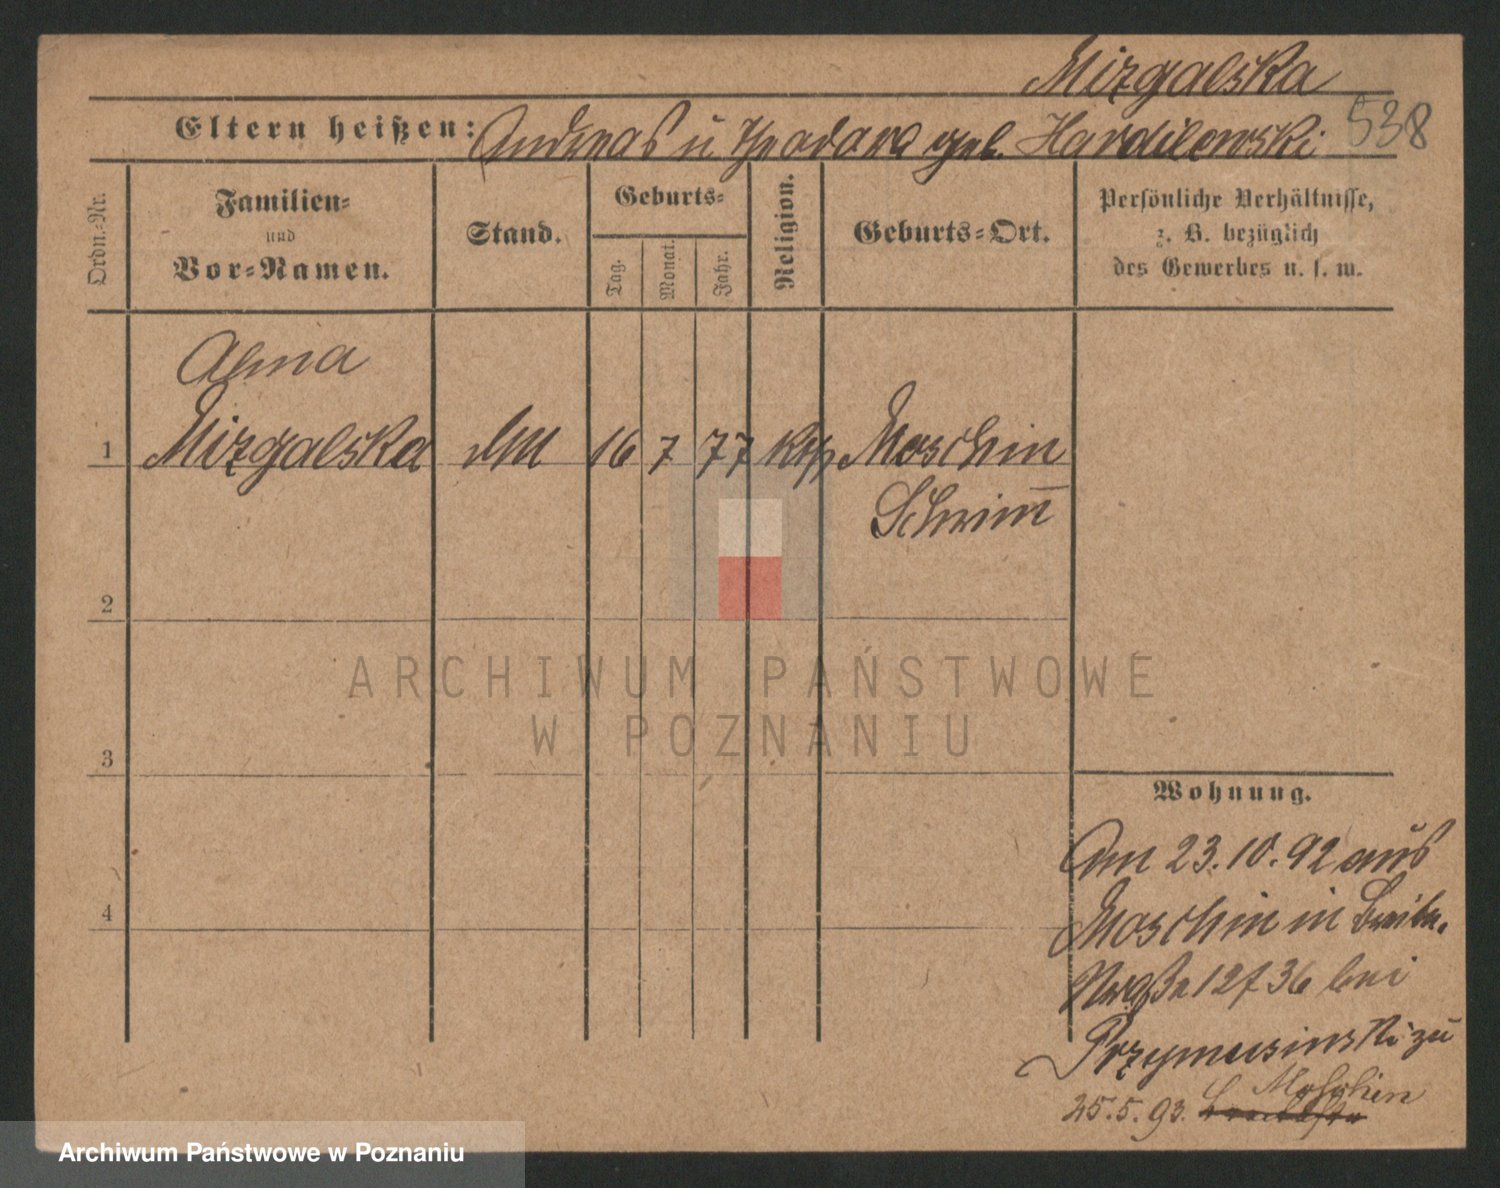 Mizgalska
538
Eltern heißen: Andreas u Theodora geb. Hardilewski
Ordn.-Nr.
Familien-
und
Vor-Namen.
Stand.
Geburts-
Tag.
Monat.
Jahr.
Religion.
Geburts-Ort.
Persönliche Verhältnisse,
z. B. bezüglich
des Gewerbes u. s. w.
Anna
1 Mizgalska 16 7 77 kth Moschin
Schrimm
2
3
4
ARCHIWUM PAŃSTWOWE
W POZNANIU
Wohnung.
Am 23.10.92 aus
Moschin in Breite-
straße 12 f 36 bei
Przymusinski zu
25.5.93. Moschin
Archiwum Państwowe w Poznaniu